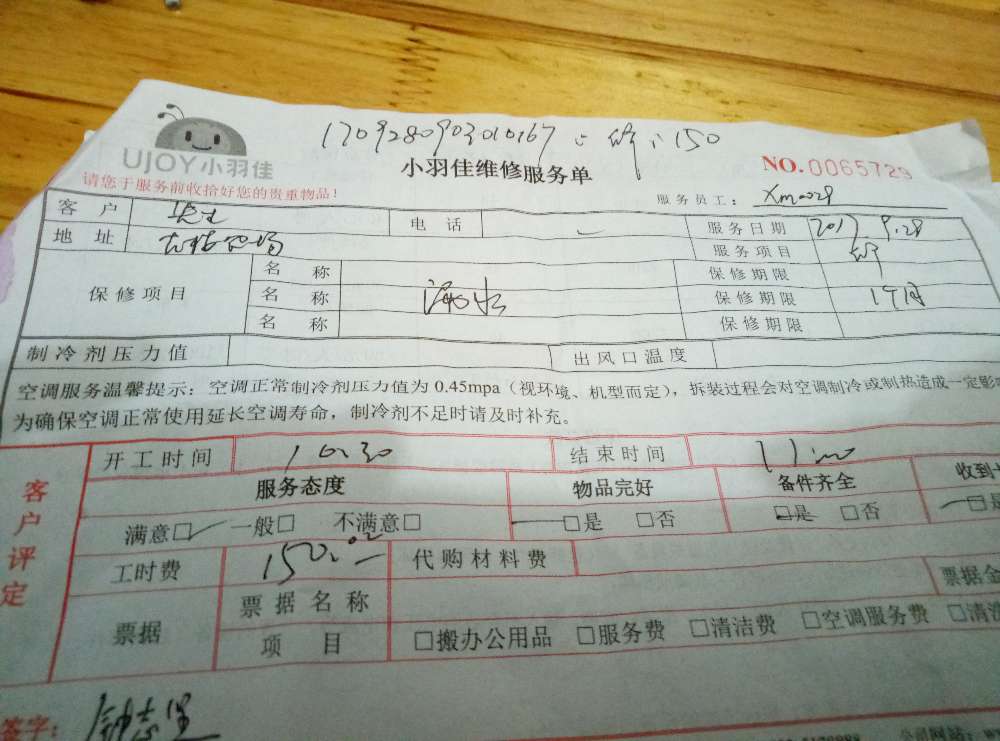 1709280903010167
150
UJOY小羽佳
小羽佳维修服务单
NO.0065729
请您于服务前收拾好您的贵重物品！
服务员工： Xm0029
客户 电话 服务日期 2017.9.28
地址 服务项目
保修项目 名称 保修期限
名称 漏水 保修期限 1个月
名称 保修期限
制冷剂压力值 出风口温度
空调服务温馨提示：空调正常制冷剂压力值为0.45mpa（视环境、机型而定），拆装过程会对空调制冷或制热造成一定影
为确保空调正常使用延长空调寿命，制冷剂不足时请及时补充。
客户评定
开工时间 10:30 结束时间 11:00
服务态度 物品完好 备件齐全 收到
满意□ 一般□ 不满意□ □是 □否 □是 □否 □是
工时费 150.00 代购材料费
票据 票据名称 票据金
项目 □搬办公用品 □服务费 □清洁费 □空调服务费 □清洗
签字： 钟志坚